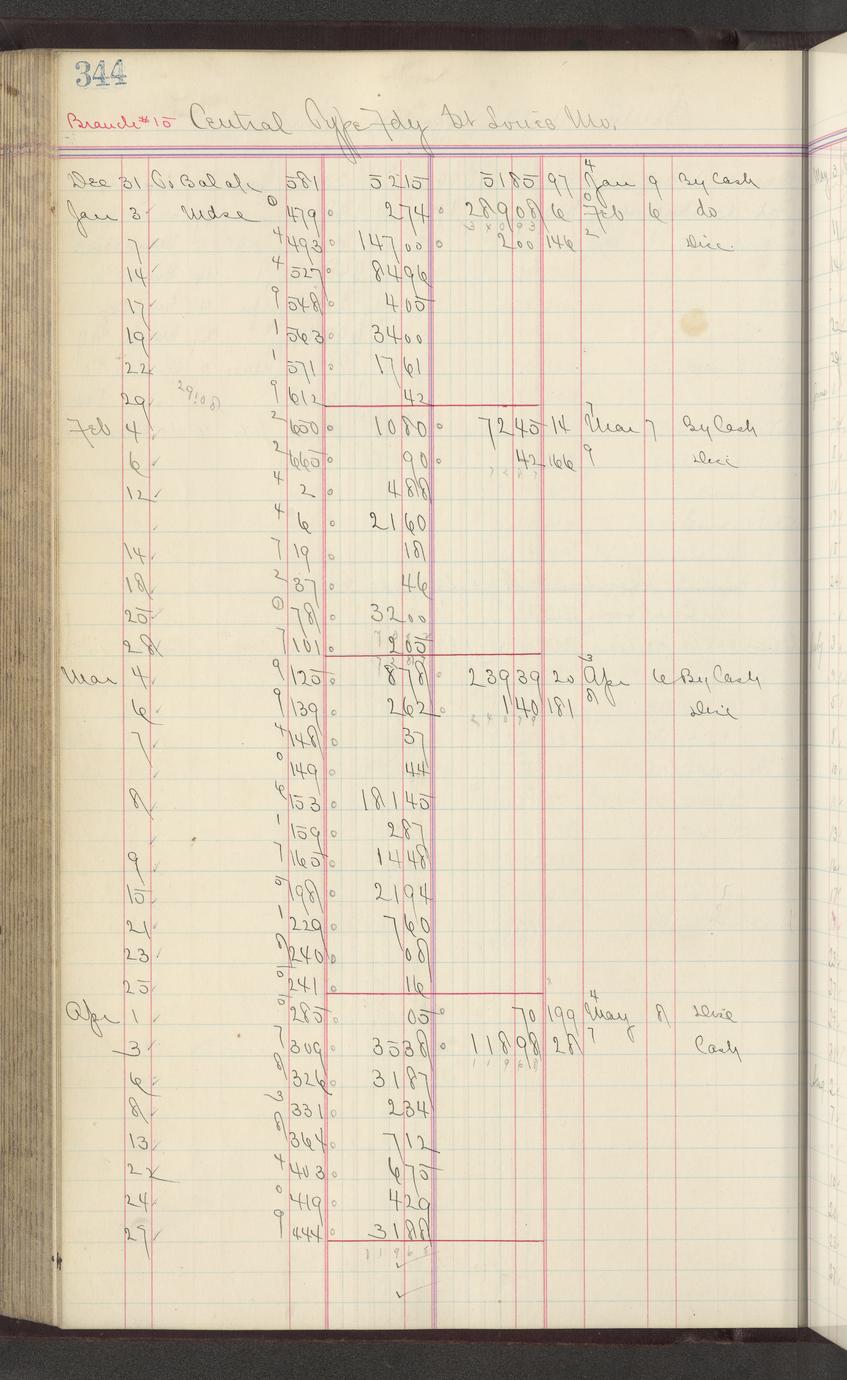 344
Branch #15 Central Type Fdy St Louis Mo.
Dec 31 To Bal a/c 581 52 15 5185 97 4 Jan 9 By Cash
Jan 3 Mdse 0 479 2 74 289 08 6 0 Feb 6 do
7 4 493 147 00 2 00 146 2 Disc.
14 4 527 84 96
17 9 548 4 05
19 1 563 34 00
22 1 571 17 61
29 291.08 9 612 42
Feb 4 2 600 10 80 72 45 14 7 Mar 7 By Cash
6 2 665 90 42 166 9 Disc
12 4 2 4 88
4 6 21 60
14 7 19 18
18 2 37 46
25 0 78 32 00
28 7 101 2 05
Mar 4 9 125 8 78 239 39 20 3 Apr 6 By Cash
6 9 139 2 62 1 40 181 8 Disc
7 4 148 37
0 149 44
8 6 153 181 45
1 159 2 87
9 7 165 14 48
15 5 198 21 94
21 1 229 7 60
23 8 240 08
25 5 241 16
Apr 1 5 285 05 70 199 4 May 8 Disc
3 7 309 35 38 118 98 28 7 Cash
119 68
6 8 326 31 87
8 3 331 2 34
13 8 364 7 12
22 4 403 6 75
24 0 419 4 29
29 9 444 31 88